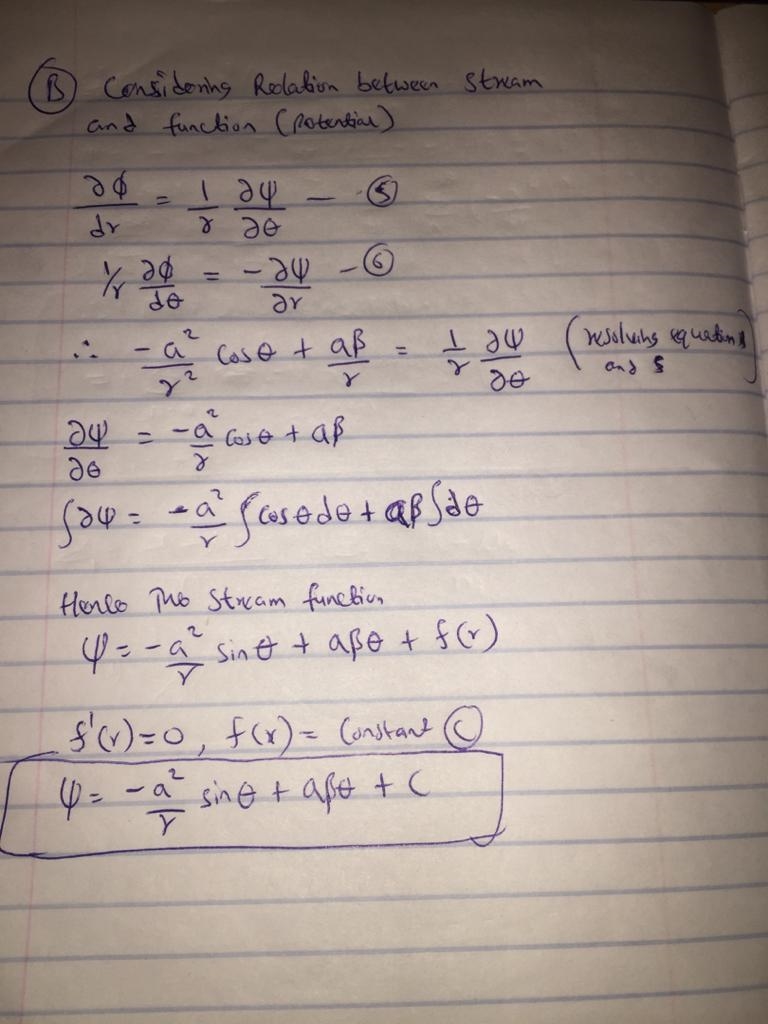 (B) Considering Relation between Stream
and function (Potential)
∂ϕ/dr = 1/r ∂ψ/∂θ — (5)
1/r ∂ϕ/dθ = -∂ψ/∂r — (6)
∴ -a²/r² Cosθ + aβ/r = 1/r ∂ψ/∂θ (resolving equation 1 and 5)
∂ψ/∂θ = -a²/r Cosθ + aβ
∫∂ψ = -a²/r ∫Cosθdθ + aβ∫dθ
Hence The Stream function
ψ = -a²/r sinθ + aβθ + f(r)
f'(r)=0, f(r) = Constant (C)
ψ = -a²/r sinθ + aβθ + C